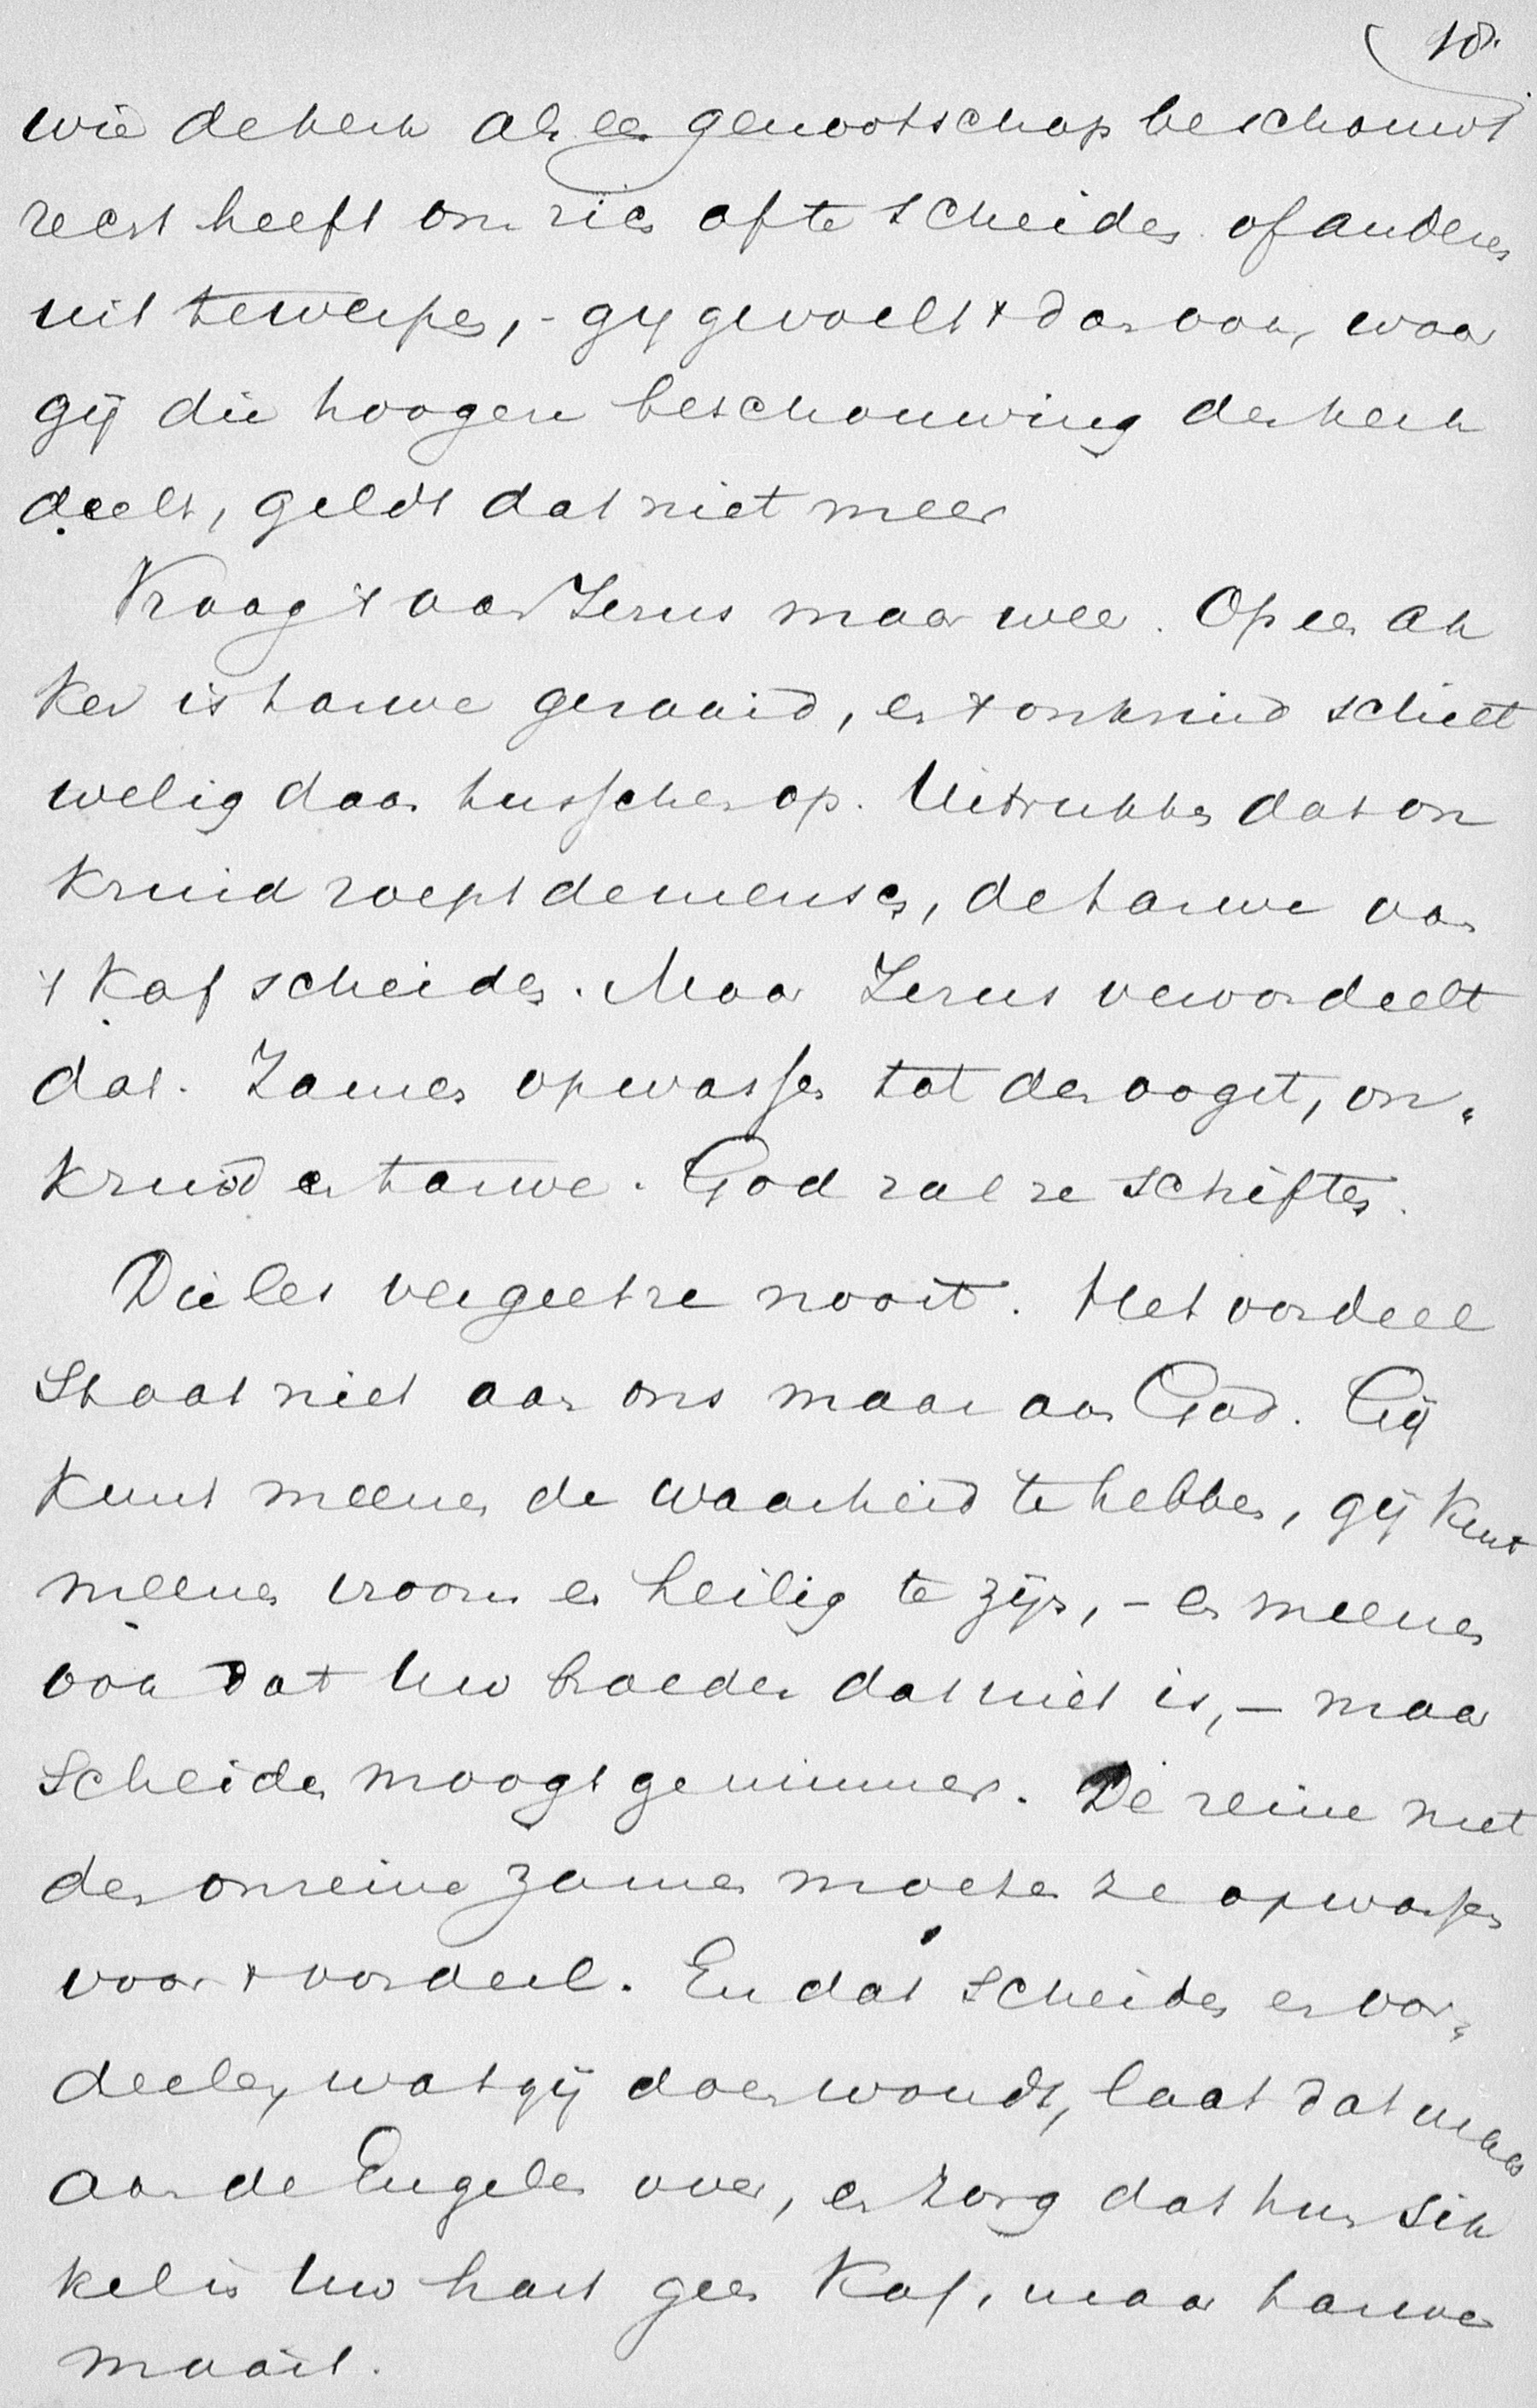 10.
wie de kerk als een genootschap beschouwt
recht heeft om zich af te scheiden of anderen
uit te werpen, - gij gevoelt 't dan ook, waar
gij die hoogere beschouwing der kerk
deelt, geldt dat niet meer
Vraag 't aan Jezus maar weer. Op een ak
ker is tarwe gezaaid, en 't onkruid schiet
welig daar tusschen op. Uitrukken dat on
kruid roept de mensch, de tarwe van
't kaf scheiden. Maar Jezus veroordeelt
dat. Zamen opwassen tot den oogst, on-
kruid en tarwe. God zal ze schiften.
Die les vergeet ze nooit. Het oordeel
staat niet aan ons maar aan God. Gij
kunt meenen de waarheid te hebben, gij kunt
meenen vroom en heilig te zijn, - en meenen
ook dat Uw broeder dat niet is, - maar
scheiden moogt ge nimmer. De reine met
den onreine zamen moeten ze opwassen
voor 't oordeel. En dat scheiden en oor-
deelen, wat gij doen woudt, laat dat
aan de Engelen over, en zorg dat hun sik
kel in Uw hart geen kaf, maar tarwe
maait.